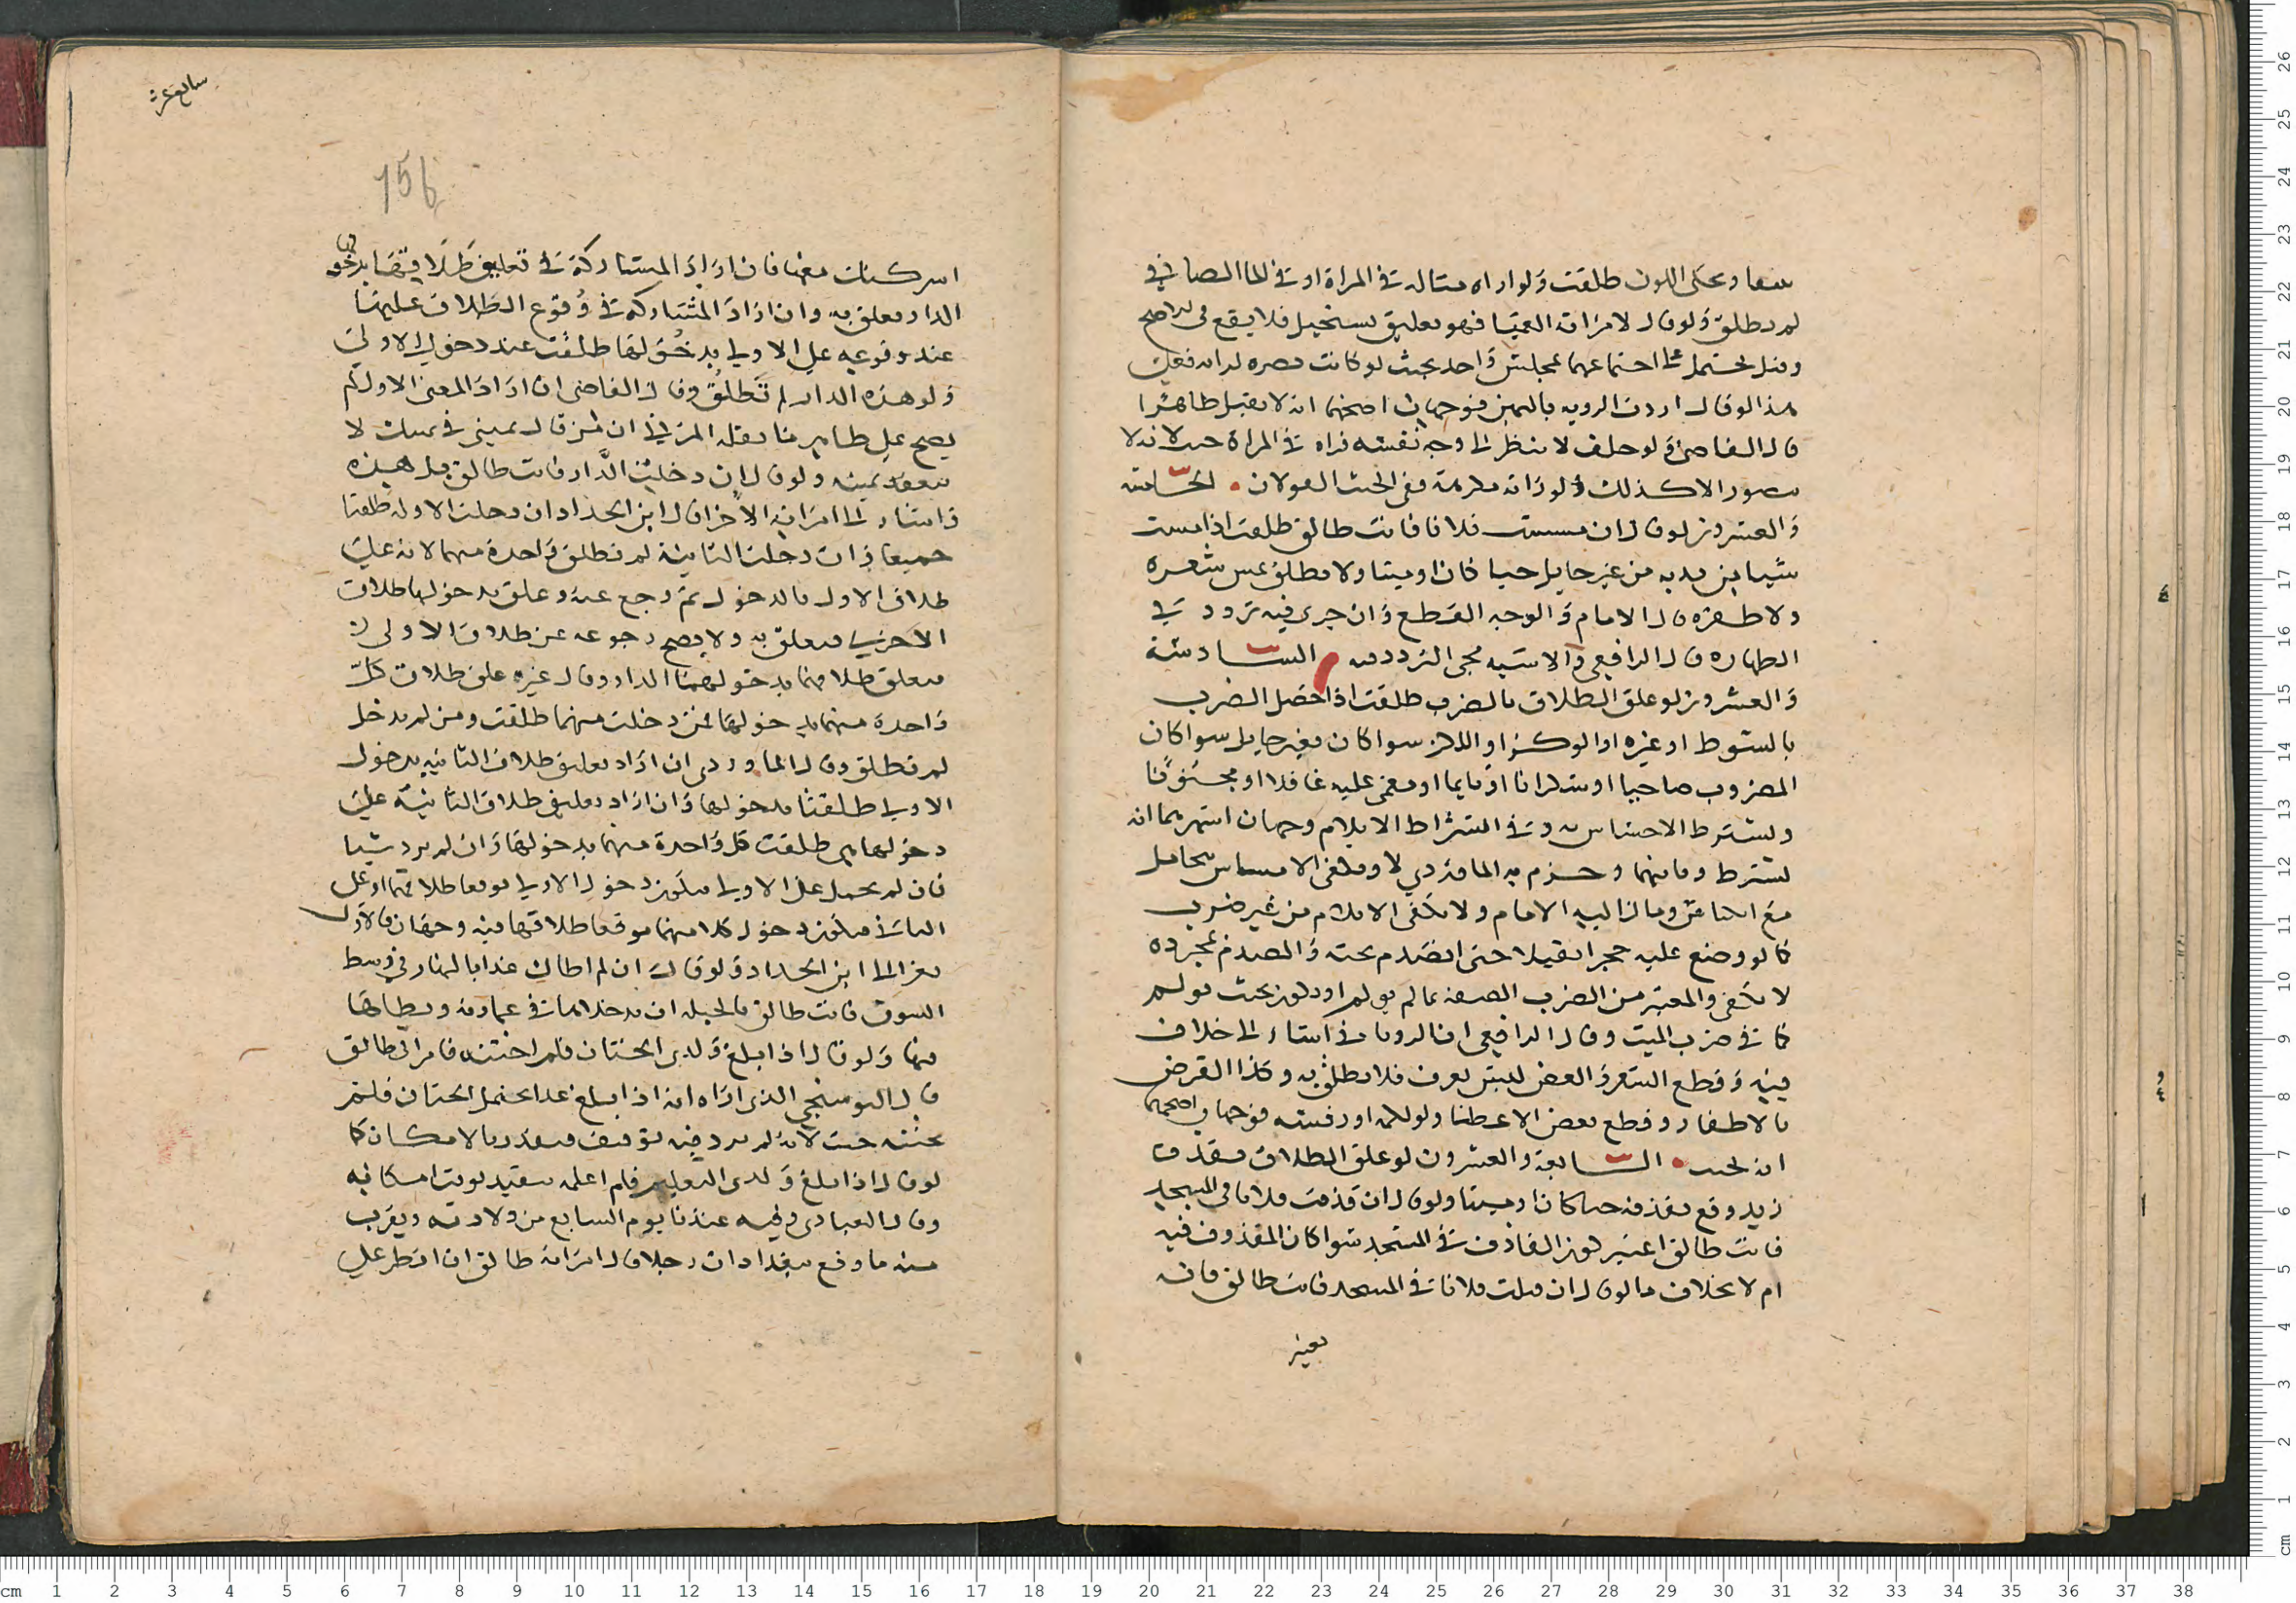 شفعا وحكى اللون طلقت ولو اراه مثاله في المراة او في الما الصافي
لم تطلق ولو قال لامراته العميا فهو تعليق بمستحيل فلا يقع في الاصح
وقيل يحتمل على اجتماعهما بمجلس واحد بحيث لو كانت بصيرة لراته فعلى
هذا لو قال اردت الرويه بالعين فوجهان اصحهما انه لا يقبل ظاهرا
قال القاضي ولو حلف لا ينظر الى وجه نفسه فراه في المراة حنث لانه لا
يتصور الا كذلك ولو راته مكرهة ففي الحنث القولان الخامسة
والعشرون لو قال ان مسست فلانا فانت طالق طلقت اذا مست
شيا من بدنه من غير حايل حيا كان او ميتا ولا تطلق بمس شعره
ولا ظفره قال الامام والوجه القطع وان جرى فيه تردد في
الطهارة قال الرافعي والاشبه مجي التردد فيه السادسة
والعشرون لو علق الطلاق بالضرب طلقت اذا حصل الضرب
بالسوط او غيره او الوكز او اللكز سوا كان بغير حايل سوا كان
المضروب صاحيا او سكرانا او نايما او مغمى عليه غافلا او مجنونا
ولا يشترط الاحساس به وفي اشتراط الايلام وجهان اشهرهما انه
يشترط وثانيهما وجزم به الماوردي لا ويكفي الامساس بحايل
مع ومال اليه الامام ولا يكفي الايلام من غير ضرب
كما لو وضع عليه حجرا ثقيلا حتى انصدم تحته والصدم بمجرده
لا يكفي والمعتبر من الضرب الصفة بما لم يولم او يكون بحيث يولم
كما في ضرب الميت وقال الرافعي ان الروياني اشار الى خلاف
فيه وقطع الشعر والعض ليس بعرف فلا تطلق به وكذا القرض
بالاظفار وقطع بعض الاعضا ولو لكمه او رفسه فوجهان اصحهما
انه يحنث السابعة والعشرون لو علق الطلاق بقذف
زيد وقع بقذفه حيا كان او ميتا ولو قال ان قذفت فلانا في المسجد
فانت طالق اعتبر كون القاذف في المسجد سوا كان المقذوف فيه
ام لا بخلاف ما لو قال ان قتلت فلانا في المسجد فانت طالق فانه
يعتبر
156
اشركتك معها فان اراد المشاركة في تعليق طلاقها بدخولها
الدار تعلق به وان اراد المشاركة في وقوع الطلاق عليها
عند وقوعه على الاولى بدخولها طلقت عند دخول الاولى
ولو هذه الدار لم تطلق وقال القاضي ان اراد المعنى الاول لم
يصح على ظاهر ما نقله المزني ان من قال يميني في يمينك لا
تنعقد يمينه ولو قال ان دخلت الدار فانت طالق بل هذه
واشار الى امراته الاخرى قال ابن الحداد ان دخلت الاولى طلقتا
جميعا وان دخلت الثانية لم تطلق واحدة منهما لانه علق
طلاق الاولى بالدخول ثم رجع عنه وعلق بدخولها طلاق
الاخرى فتعلق به ولا يصح رجوعه عن طلاق الاولى
فتعلق طلاقهما بدخولها الدار وقال غيره علق طلاق كل
واحدة منهما بدخولها فمن دخلت منهما طلقت ومن لم تدخل
لم تطلق وقال الماوردي ان اراد تعليق طلاق الثانيه بدخول
الاولى طلقتا بدخولها وان اراد تعليق طلاق الثانية على
دخولها هي طلقت كل واحدة منهما بدخولها وان لم يرد شيا
فان لم يحمل على الاولى فيكون دخول الاولى موقعا طلاقهما او على
الثاني فيكون دخول كلا منهما موقعا طلاقها فيه وجهان فالاول
يعزى الى ابن الحداد ولو قال ان لم اطاك غدا بالنهار في وسط
السوق فانت طالق فالحيلة ان يدخلها في عمارية ويطاها
فيها ولو قال اذا بلغ ولدي الختان فلم اختنه فامراتي طالق
قال البوسنجي الذي اراه انه اذا بلغ غدا يحتمل الختان فلم
يختنه حنث لانه لم يرد فيه توقيف فيقدر بالامكان كما
لو قال اذا بلغ ولدي التعليم فلم اعلمه يتقيد بوقت امكانه
وقال العبادي وقته عندنا يوم السابع من ولادته ويقرب
منه ما وقع ببغداد ان رجلا قال لامراته طالق ان افطر على